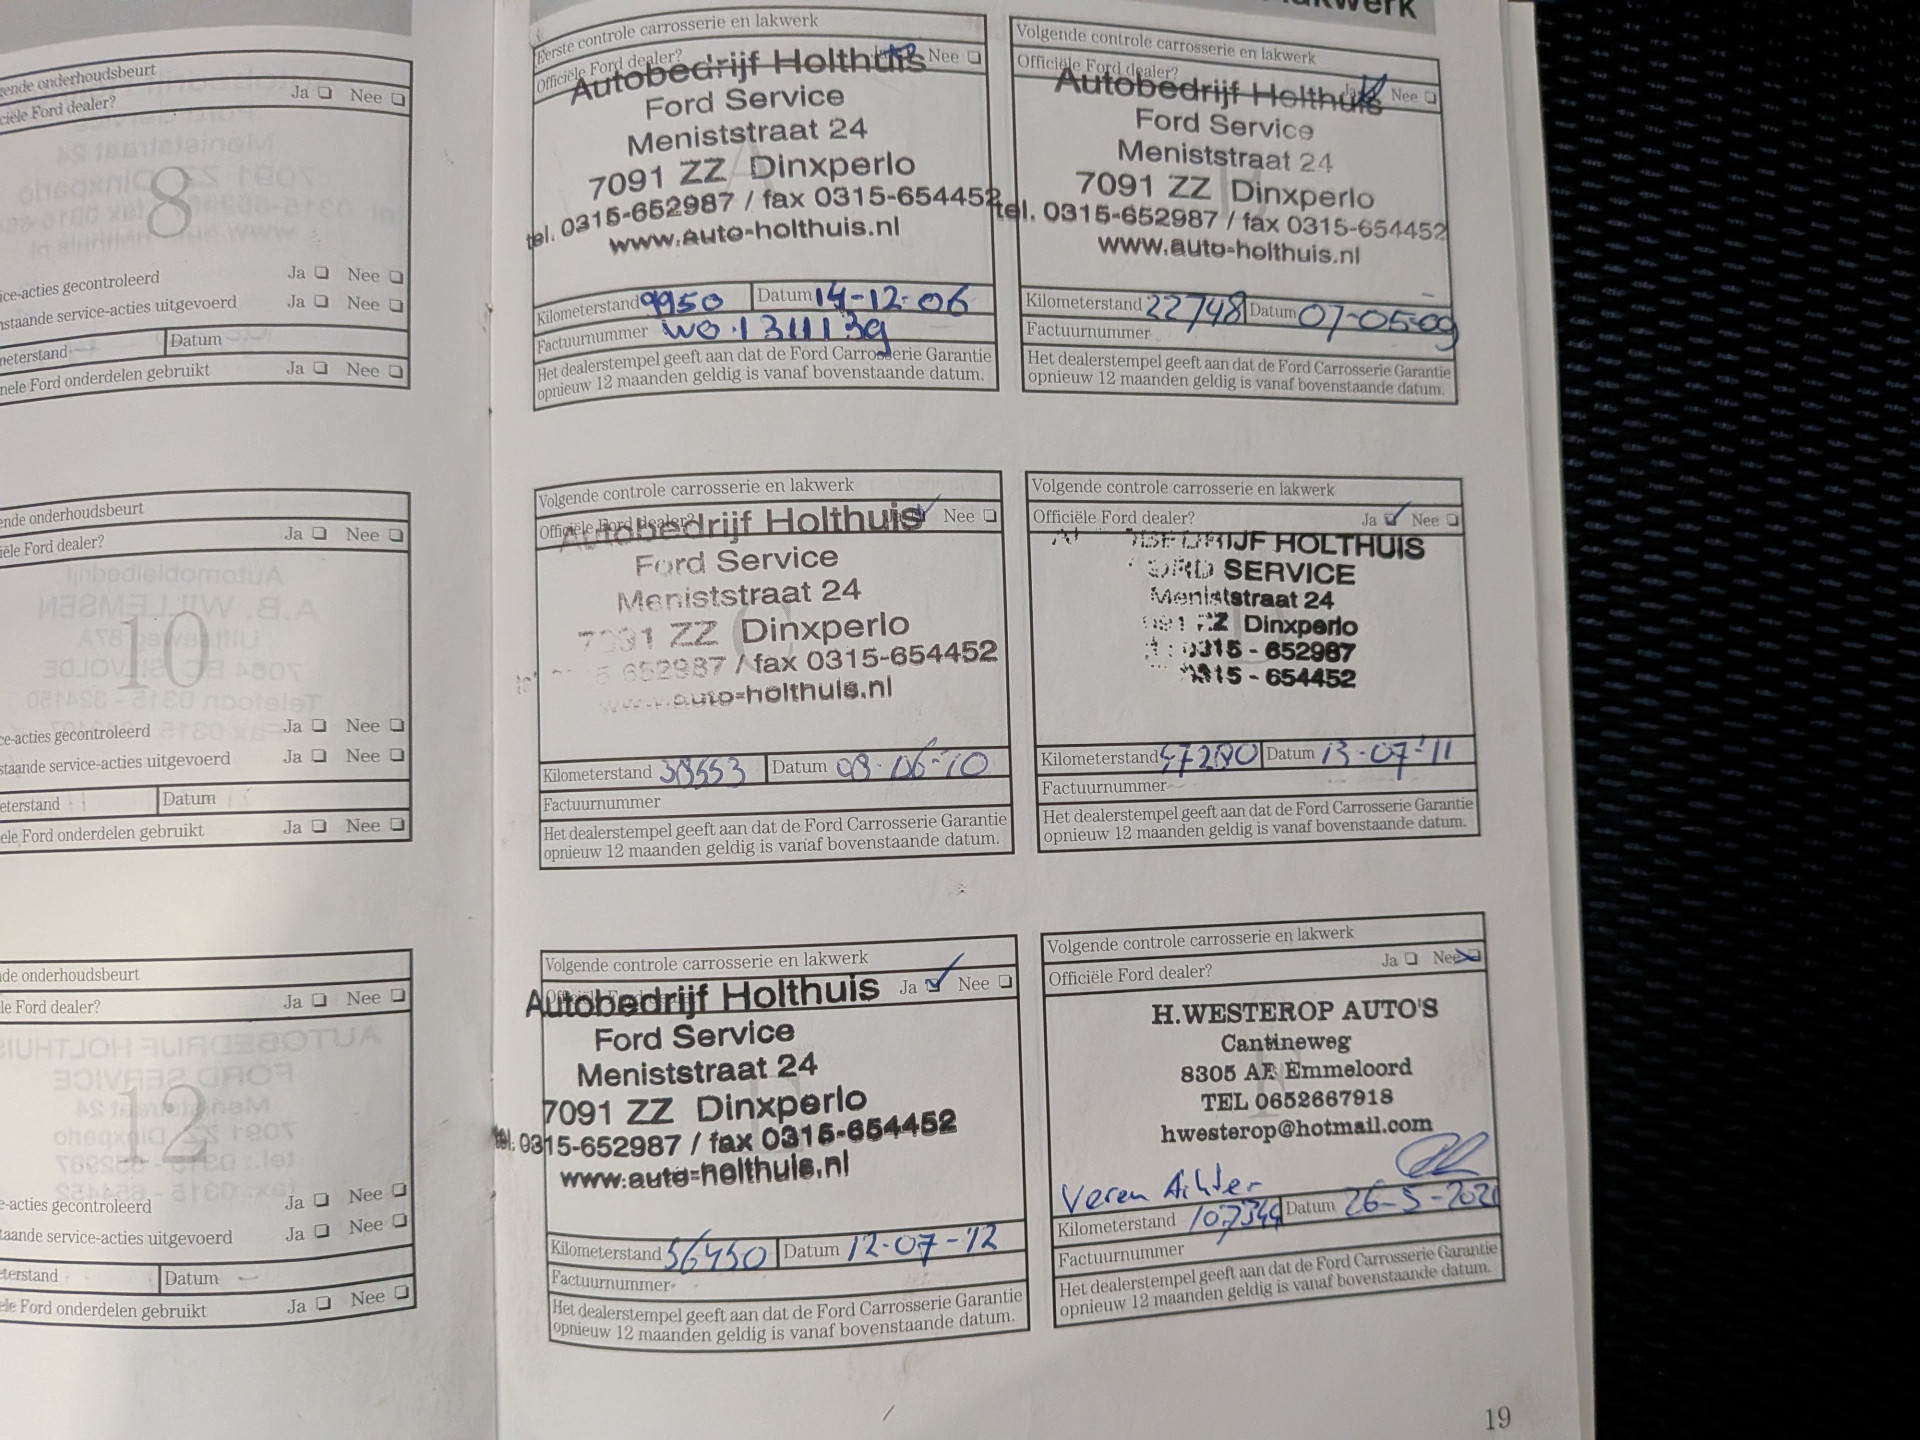 onderhoudsbeurt
Ford dealer?
Ja Nee
8
gecontroleerd Ja Nee
service-acties uitgevoerd Ja Nee
Datum
Ford onderdelen gebruikt Ja Nee
onderhoudsbeurt
Ford dealer? Ja Nee
10
gecontroleerd Ja Nee
service-acties uitgevoerd Ja Nee
Datum
Ford onderdelen gebruikt Ja Nee
onderhoudsbeurt
Ford dealer? Ja Nee
12
gecontroleerd Ja Nee
service-acties uitgevoerd Ja Nee
Datum
Ford onderdelen gebruikt Ja Nee
Eerste controle carrosserie en lakwerk
Officiële Ford dealer? Nee
Autobedrijf Holthuis
Ford Service
Meniststraat 24
7091 ZZ Dinxperlo
tel. 0315-652987 / fax 0315-654452
www.auto-holthuis.nl
Kilometerstand 9950 Datum 14-12-06
Factuurnummer
Het dealerstempel geeft aan dat de Ford Carrosserie Garantie
opnieuw 12 maanden geldig is vanaf bovenstaande datum.
Volgende controle carrosserie en lakwerk
Officiële Ford dealer? Ja Nee
Autobedrijf Holthuis
Ford Service
Meniststraat 24
7091 ZZ Dinxperlo
tel. 0315-652987 / fax 0315-654452
www.auto-holthuis.nl
Kilometerstand 22748 Datum 07-05-09
Factuurnummer
Het dealerstempel geeft aan dat de Ford Carrosserie Garantie
opnieuw 12 maanden geldig is vanaf bovenstaande datum.
Volgende controle carrosserie en lakwerk
Officiële Ford dealer? Ja Nee
Autobedrijf Holthuis
Ford Service
Meniststraat 24
7091 ZZ Dinxperlo
652987 / fax 0315-654452
www.auto-holthuis.nl
Kilometerstand Datum 08-06-10
Factuurnummer
Het dealerstempel geeft aan dat de Ford Carrosserie Garantie
opnieuw 12 maanden geldig is vanaf bovenstaande datum.
Volgende controle carrosserie en lakwerk
Officiële Ford dealer? Ja Nee
HOLTHUIS
SERVICE
Meniststraat 24
Dinxperlo
0315 - 652987
0315 - 654452
Kilometerstand Datum 13-07-'11
Factuurnummer
Het dealerstempel geeft aan dat de Ford Carrosserie Garantie
opnieuw 12 maanden geldig is vanaf bovenstaande datum.
Volgende controle carrosserie en lakwerk
Ja Nee
Autobedrijf Holthuis
Ford Service
Meniststraat 24
7091 ZZ Dinxperlo
tel. 0315-652987 / fax 0315-654452
www.auto-holthuis.nl
Kilometerstand 56450 Datum 12-07-'12
Factuurnummer
Het dealerstempel geeft aan dat de Ford Carrosserie Garantie
opnieuw 12 maanden geldig is vanaf bovenstaande datum.
Volgende controle carrosserie en lakwerk
Officiële Ford dealer? Ja Nee
H.WESTEROP AUTO'S
Cantineweg
8305 AE Emmeloord
TEL 0652667918
hwesterop@hotmail.com
Veren Achter
Kilometerstand Datum
Factuurnummer
Het dealerstempel geeft aan dat de Ford Carrosserie Garantie
opnieuw 12 maanden geldig is vanaf bovenstaande datum.
19